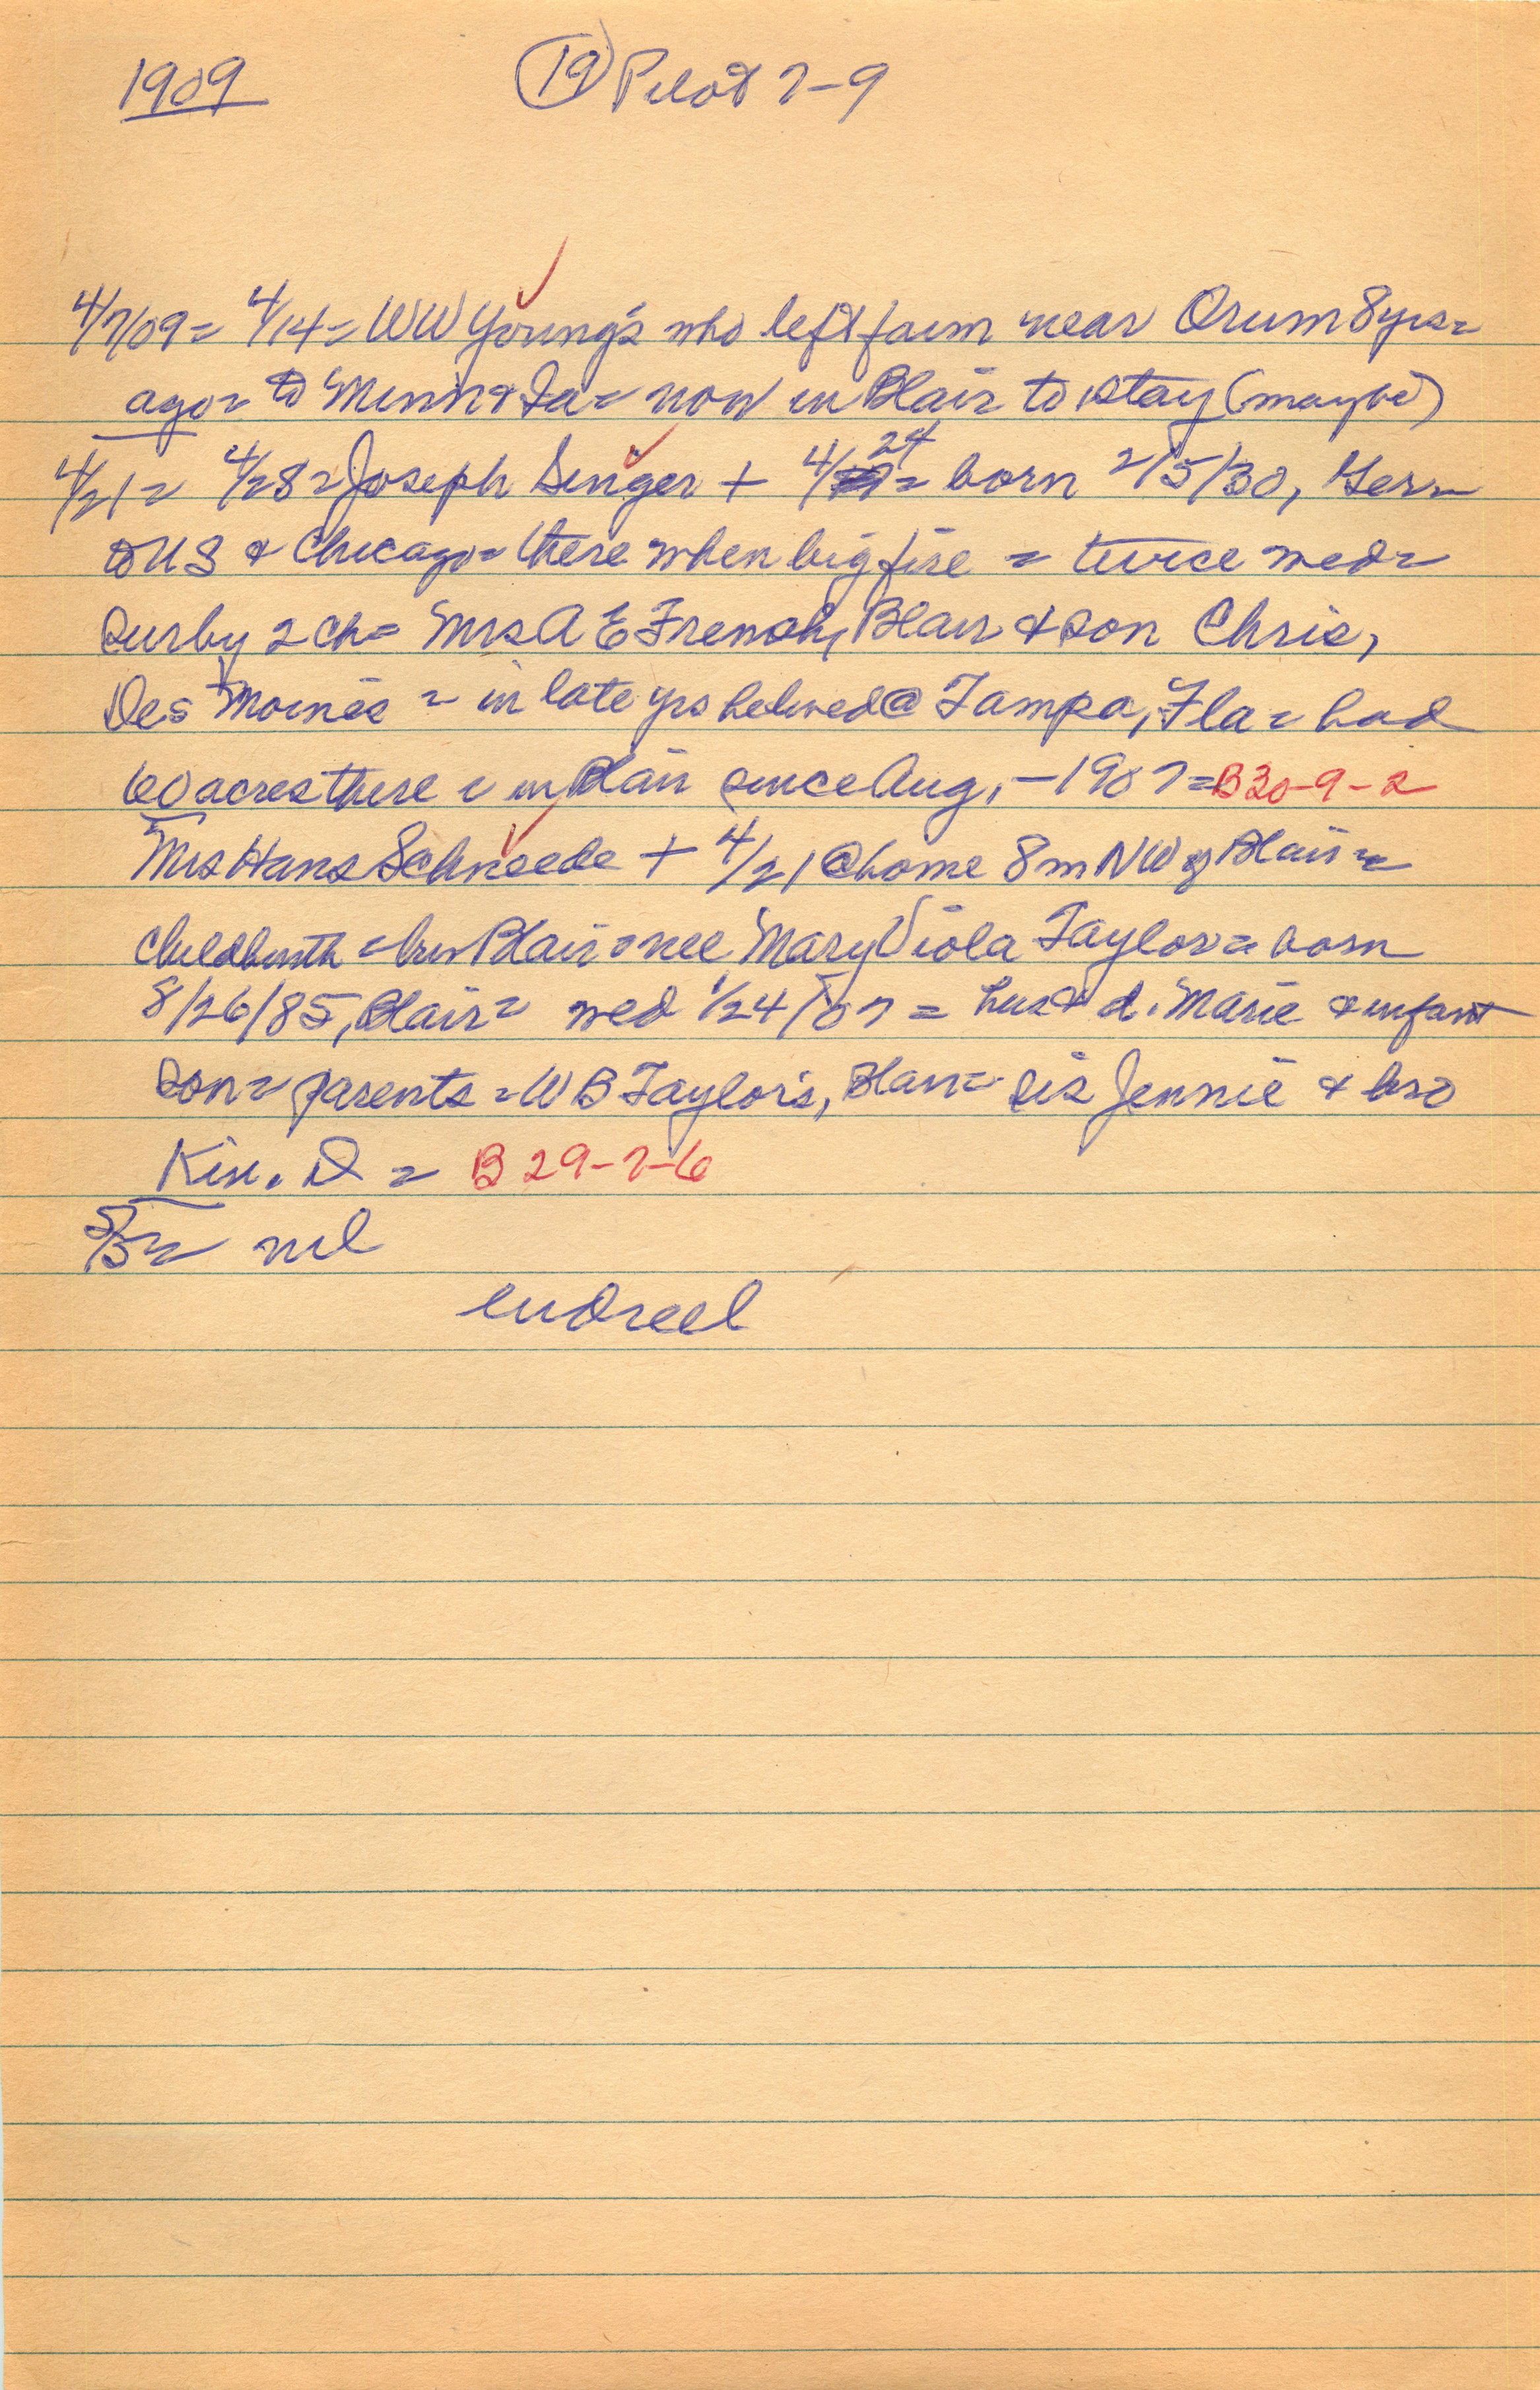 1909 (19) Pilot 7-9
4/7/09= 4/14= WW Young's who left farm near Orum 8 yrs=
ago= to Minn & Ia= now in Blair to stay (maybe)
4/21= 4/28= Joseph Senger + 4/24= born 2/5/30, Ger=
to US & Chicago= there when big fire = twice wed=
Sur by 2 ch= Mrs A E French, Blair & son Chris,
Des Moines = in late yrs he lived @ Tampa, Fla= had
60 acres there = in Blair since Aug, -1907= B30-9-2
Mrs Hans Schneede + 4/21 @ home 8m NW of Blair=
childbirth = bur Blair= nee Mary Viola Taylor= born
8/26/85, Blair= wed 1/24/07 = hus & d. Marie & infant
son= parents= WB Taylor's, Blair= sis Jennie & bro
D = B 29-7-6
5/5= nil
end reel